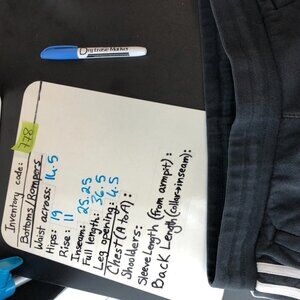 Dry Erase Marker
Inventory code: 778
Bottoms/Rompers
Waist across: 14.5
Hips: 19
Rise: 11
Inseam: 25.25
Full length: 36.5
Leg opening: 4.5
Chest (A to A):
Shoulders:
Sleeve Length (from armpit):
Back Length (collar→inseam):